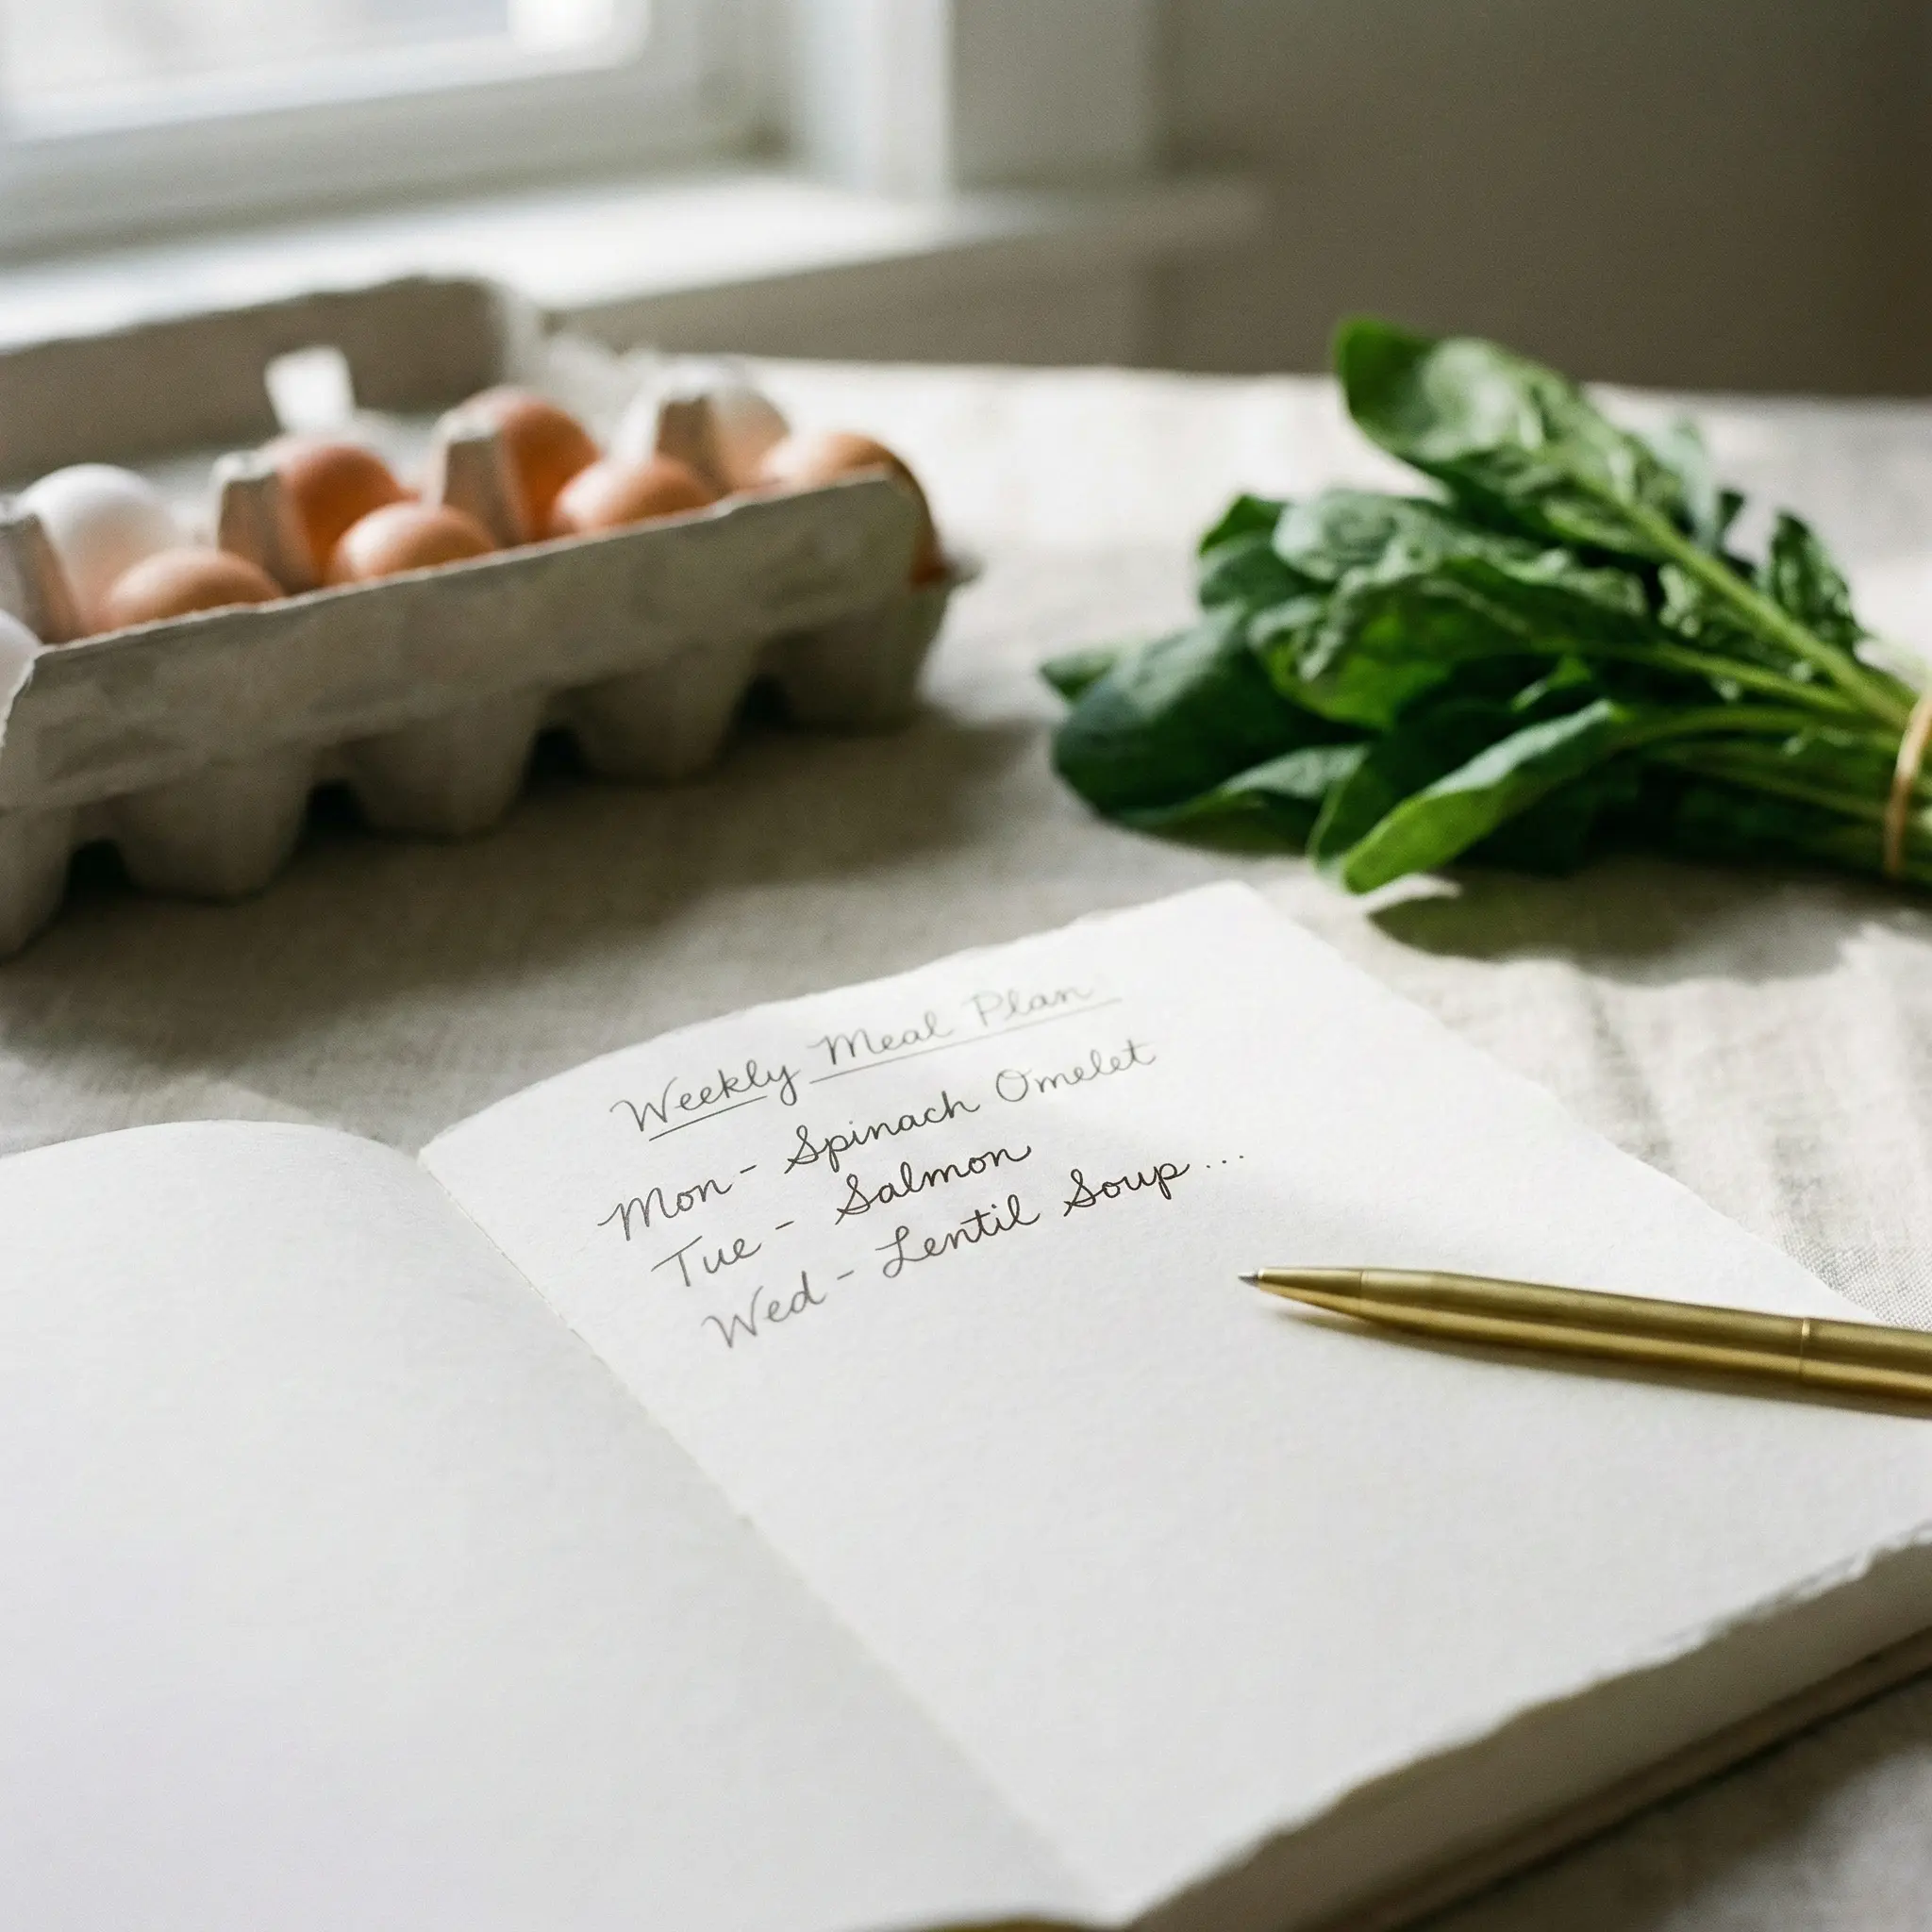 Weekly Meal Plan
Mon - Spinach Omelet
Tue - Salmon
Wed - Lentil Soup...